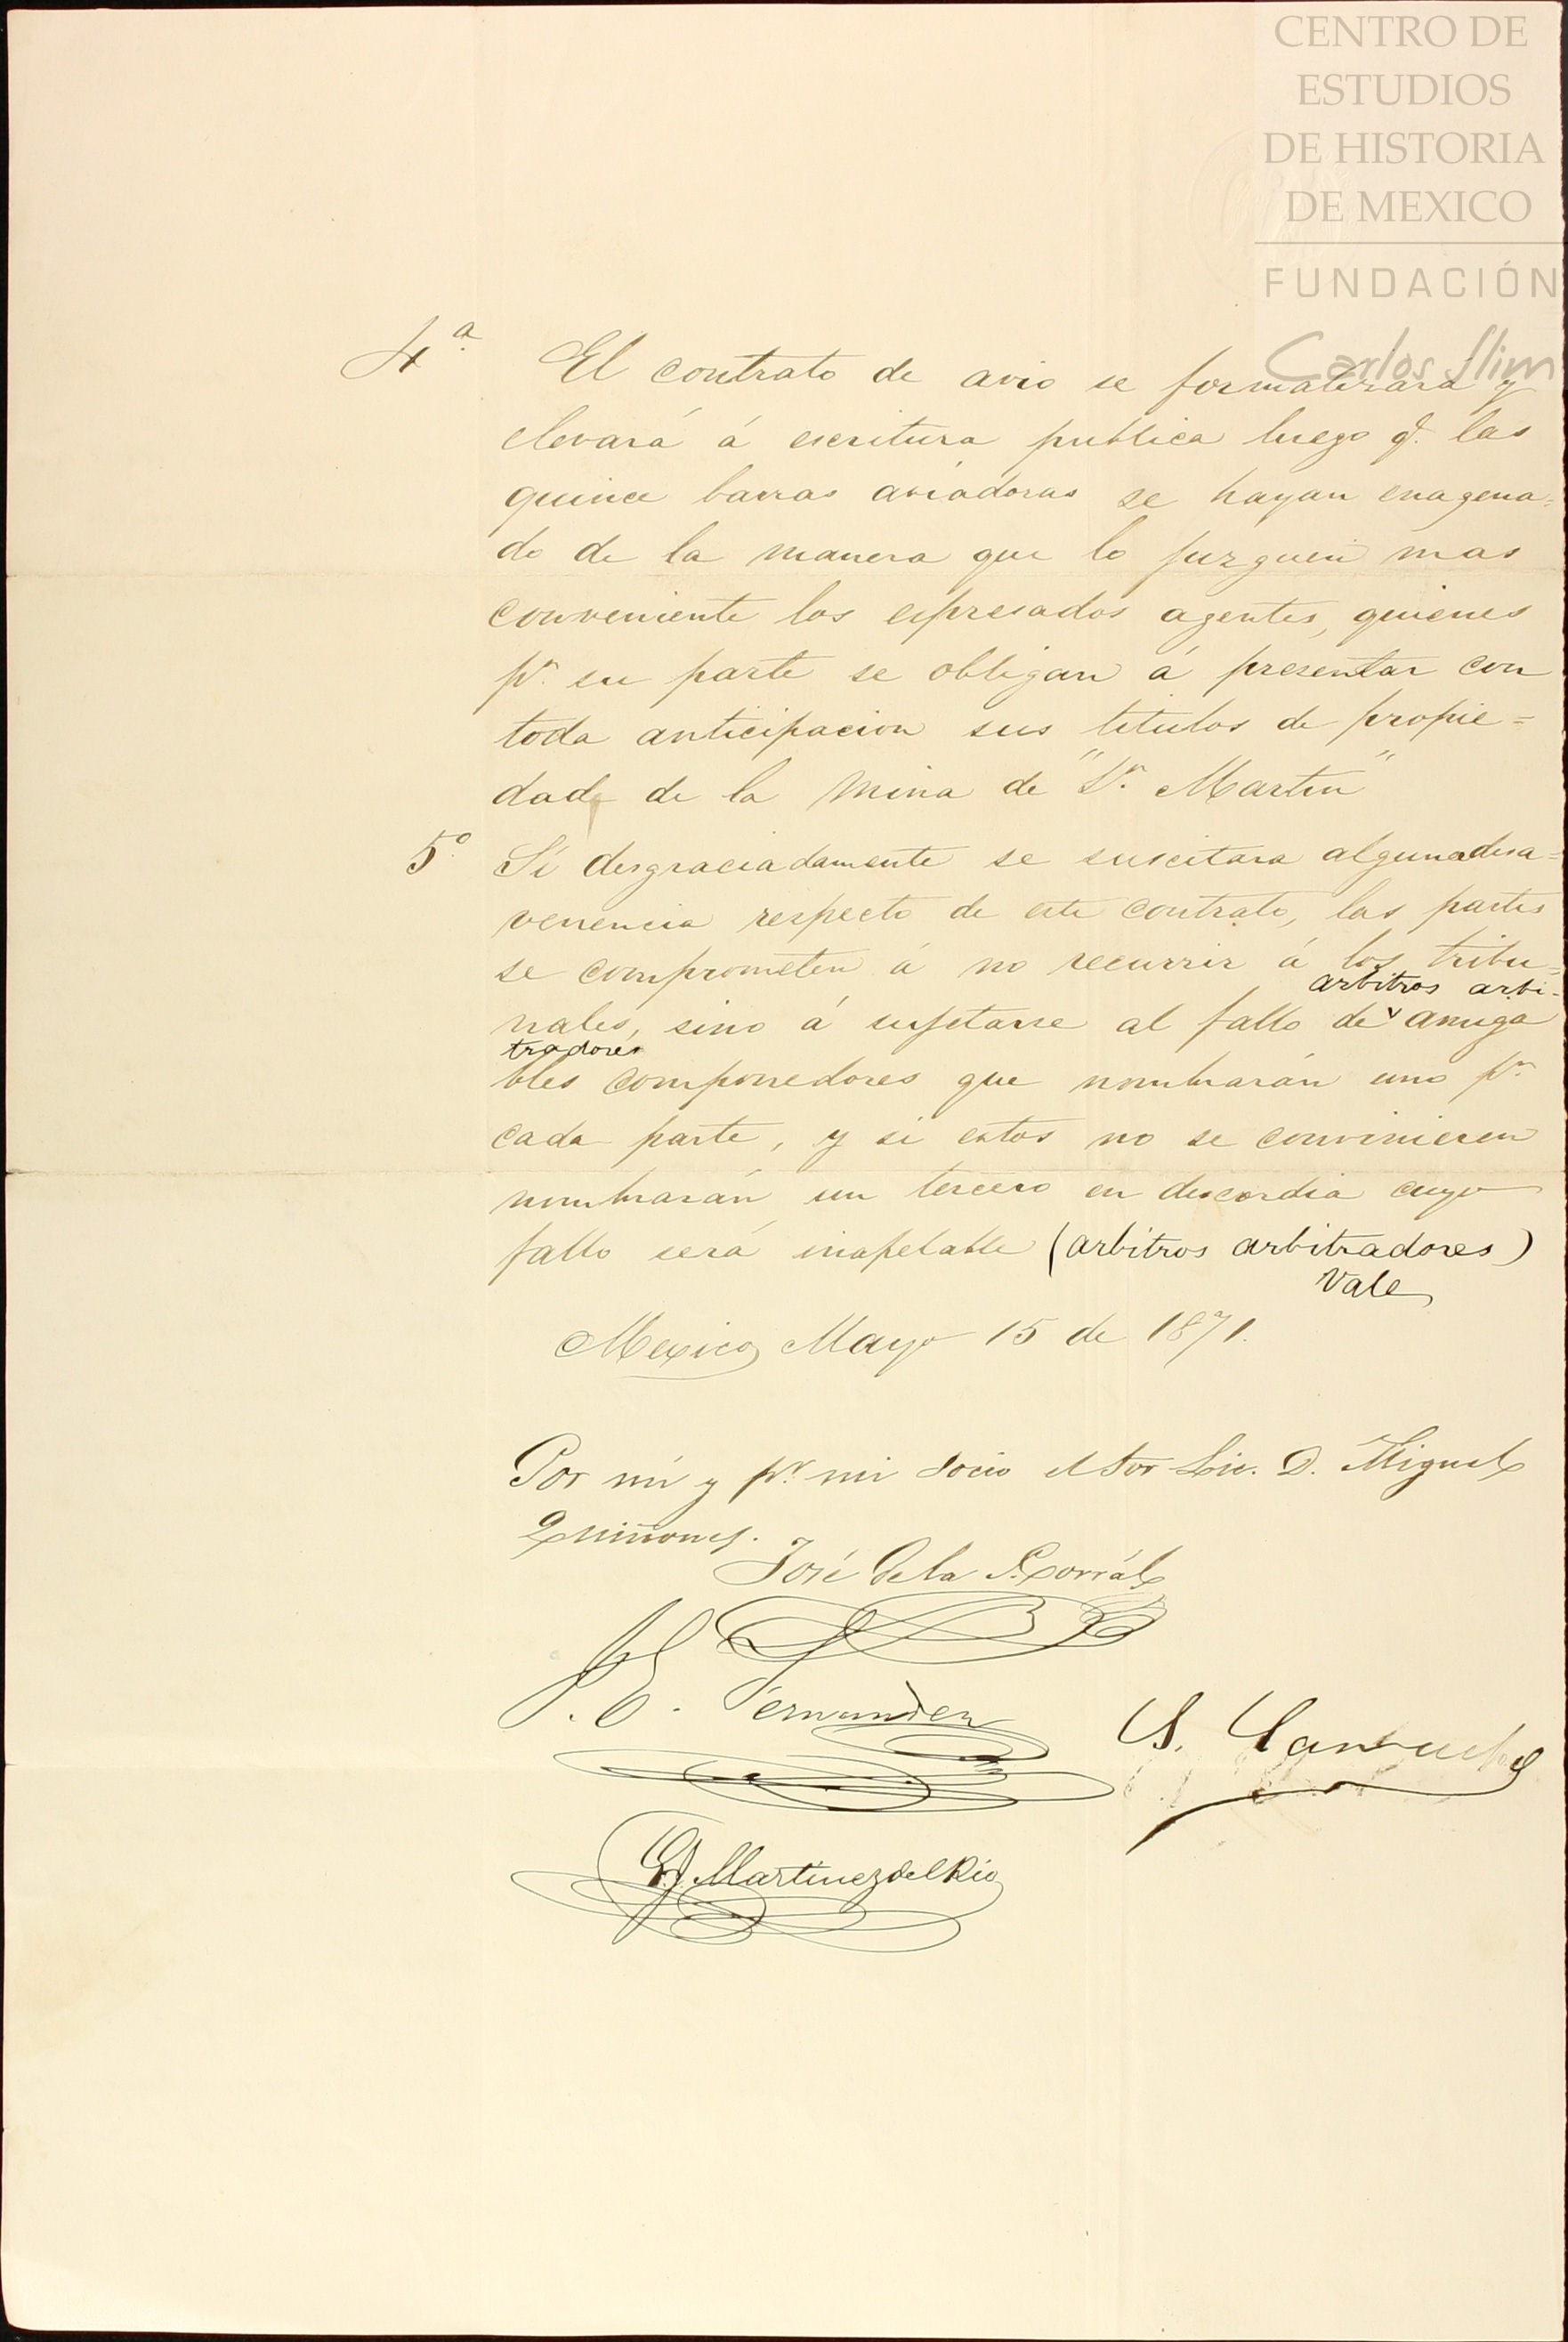 CENTRO DE
ESTUDIOS
DE HISTORIA
DE MEXICO
FUNDACIÓN
Carlos Slim
4ª. El contrato de avio se formalizará y
elevará á escritura publica luego q̃. las
quince barras aviadoras se hayan enagena=
do de la manera que lo juzguen mas
conveniente los espresados agentes, quienes
pr. su parte se obligan á presentar con
toda anticipacion sus titulos de propie=
dad de la mina de "Sn. Martin"
5º. Si desgraciadamente se suscitara alguna desa=
venencia respecto de este contrato, las partes
se comprometen á no recurrir á los tribu=
arbitros arbi-
nales, sino á sujetarse al fallo de amiga
tradores
bles componedores que nombrarán uno pr.
cada parte, y si estos no se convinieren
nombrarán un tercero en discordia cuyo
fallo será inapelable (arbitros arbitradores)
Vale
Mexico, Mayo 15 de 1871.
Por mí y pr. mi socio el Sor Lic. D. Miguel
Quiñones.
José de la P. Corrál
J. E. Fernandez
G. Martinez del Rio